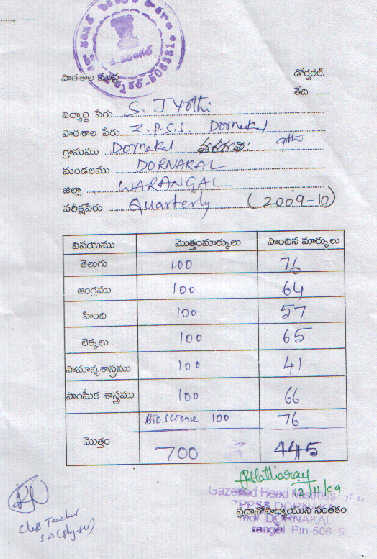 పాఠశాల
డోర్నకల్
తేది
విద్యార్థి పేరు S. Jyothi
పాఠశాల పేరు Z.P.S.S Dornakal
గ్రామము Dornakal
మండలము DORNAKAL
జిల్లా WARANGAL
పరీక్షపేరు Quarterly (2009-10)
విషయము మొత్తంమార్కులు పొందిన మార్కులు
తెలుగు 100 76
ఆంగ్లము 100 64
హింది 100 57
లెక్కలు 100 65
సామాన్యశాస్త్రము 100 41
సాంఘీక శాస్త్రము 100 66
Bio.Science 100 76
మొత్తం 700 445
12/11/09
Gazetted Head
ప్రధానోపాధ్యాయుని సంతకం
DORNAKAL
Class Teacher